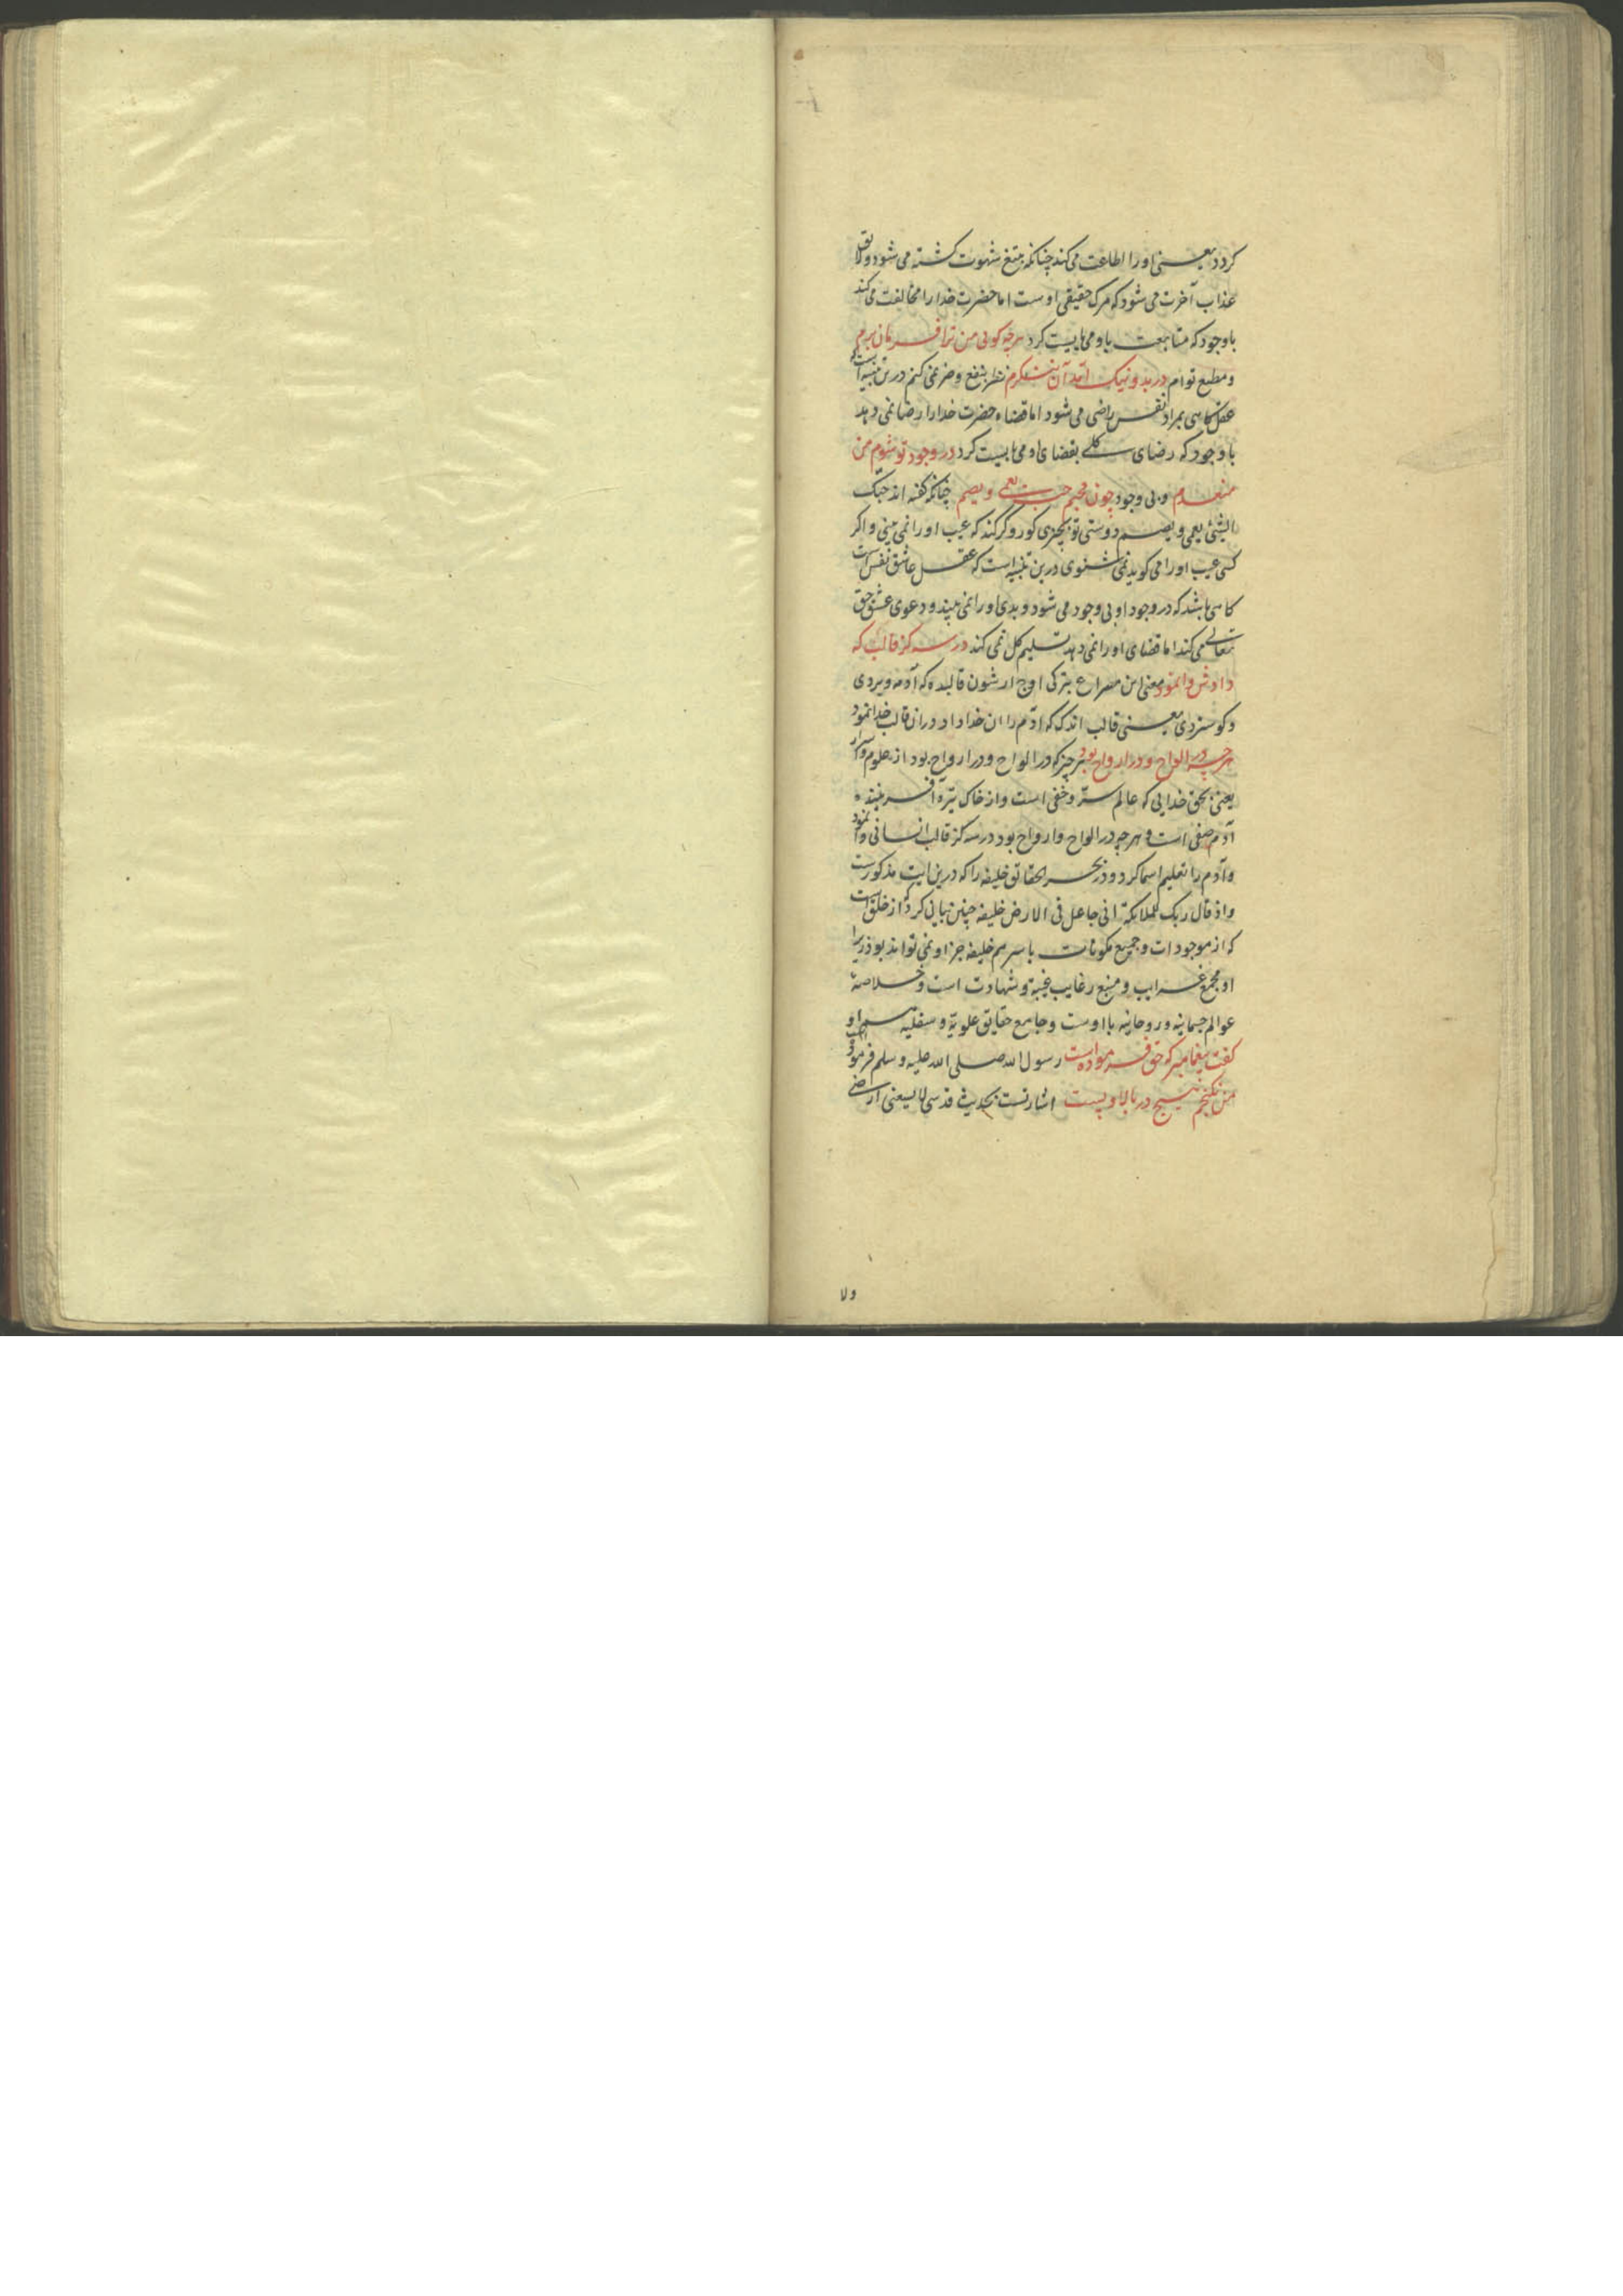 کردد یعنی اورا اطاعت می کند چنانکه بتیغ شهوت کشته می شود ولایق
عذاب آخرت می شود که مرک حقیقی اوست اما حضرت خدارا مخالفت می کند
باوجود که متابعت باومی بایست کرد هرچه کویی من ترا فرمان برم
ومطیع توام در بد ونیک آمد آن ننکرم نظر بنفع وضر نمی کنم درین تنبیه است که
عقل کاهی بمراد نفس راضی می شود اما قضاء حضرت خدارا رضا نمی دهد
باوجود که رضای کلی بقضای او می بایست کرد در وجود تو شوم من
منعدم وبی وجود چون محبم حب یعمی ویصم چنانکه کفته اند حبّک
الشئ یعمی ویصم دوستی تو بچیزی کور وکر کند که عیب اورا نمی بینی واکر
کسی عیب اورا می کوید نمی شنوی درین تنبیه است که عقل عاشق نفس است
کاهی باشد که در وجود او بی وجود می شود وبدی اورا نمی بیند ودعوی عشق حق
تعالی می کند اما قضای اورا نمی دهد تسلیم کل نمی کند در سه کز قالب که
دادش وانمود معنی این مصراع بترکی اوچ ارشون قالبده که آدمه ویردی
وکوستردی یعنی قالب اندک که آدم را ان خدا داد دران قالب خدا نمود
هرچه در الواح ودر ارواح بود هر چیز که در الواح ودر ارواح بود از علوم واسرار
یعنی بحق خدایی که عالم سرّ وخفی است واز خاک تیره آفریننده
آدم صفی است وهرچه در الواح وارواح بود در سه کز قالب انسانی وانمود
وآدم را تعلیم اسما کرد ودر بحر الحقائق خلیفه را که درین ایت مذکورست
واذ قال ربک للملائکة انی جاعل فی الارض خلیفه چنین بیان کرده از خلق است
که از موجودات وجمیع مکونات باسرهم خلیفه جز او نمی تواند بود زیرا
او مجمع غرایب ومنبع رغایب غیبة وشهادت است وخلاصهٔ
عوالم جسمانیه وروحانیه بااوست وجامع حقایق علویّه وسفلیه هم او
کفت پیغامبر که حق فرموده است رسول الله صلی الله علیه وسلم فرمود
من نکنجم هیچ در بالا وپست اشارتست بحدیث قدسی لا یسعنی ارضی
ولا